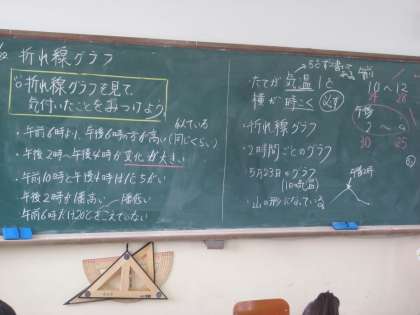 折れ線グラフ
折れ線グラフを見て、
気付いたことをみつけよう。
似ている
午前6時より、午後6時の方が高い(同じくらい)
・午後2時〜午後4時が変化が大きい
・午前10時と午後4時は
午後2時が1番高い 1番低い
午前6時だけ20℃をこえてない
たてが気温1℃
横が時こく
・折れ線グラフ
・2時間ごとのグラフ
・5月23日のグラフ
(1日の気温)
・山の形になっている
午前
10〜12
28
午後
2〜4
30 25
午後2時